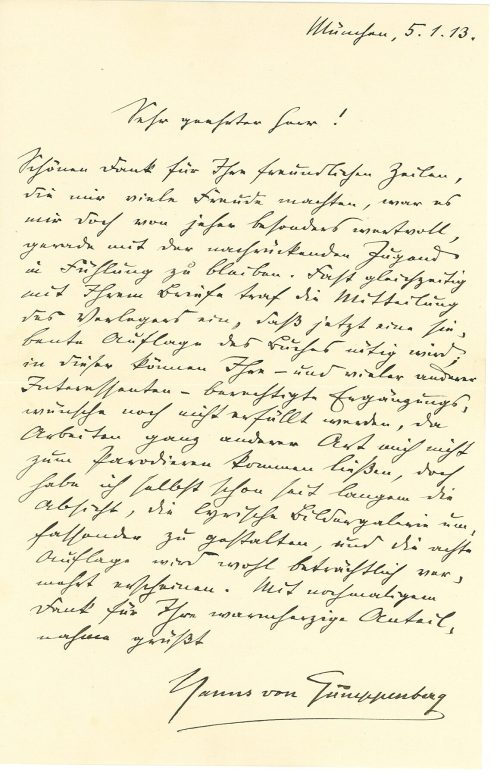 München, 5. 1. 13.
Sehr geehrter Herr!
Schönen Dank für Ihre freundlichen Zeilen,
die mir viele Freude machten, war es
mir doch von jeher besonders wertvoll,
gerade mit der nachrückenden Jugend
in Fühlung zu bleiben. Fast gleichzeitig
mit Ihrem Briefe traf die Mitteilung
des Verlegers ein, daß jetzt eine sie-
bente Auflage des Buches nötig wird;
in dieser können Ihre – und vieler anderer
Interessenten – berechtigte Ergänzungs-
wünsche noch nicht erfüllt werden, da
Arbeiten ganz anderer Art mich nicht
zum Parodieren kommen ließen, doch
habe ich selbst schon seit langem die
Absicht, die lyrische Bildergalerie um-
fassender zu gestalten, und die achte
Auflage wird wohl beträchtlich ver-
mehrt erscheinen. Mit nochmaligem
Dank für Ihre warmherzige Anteil-
nahme grüßt
Hanns von Gumppenberg